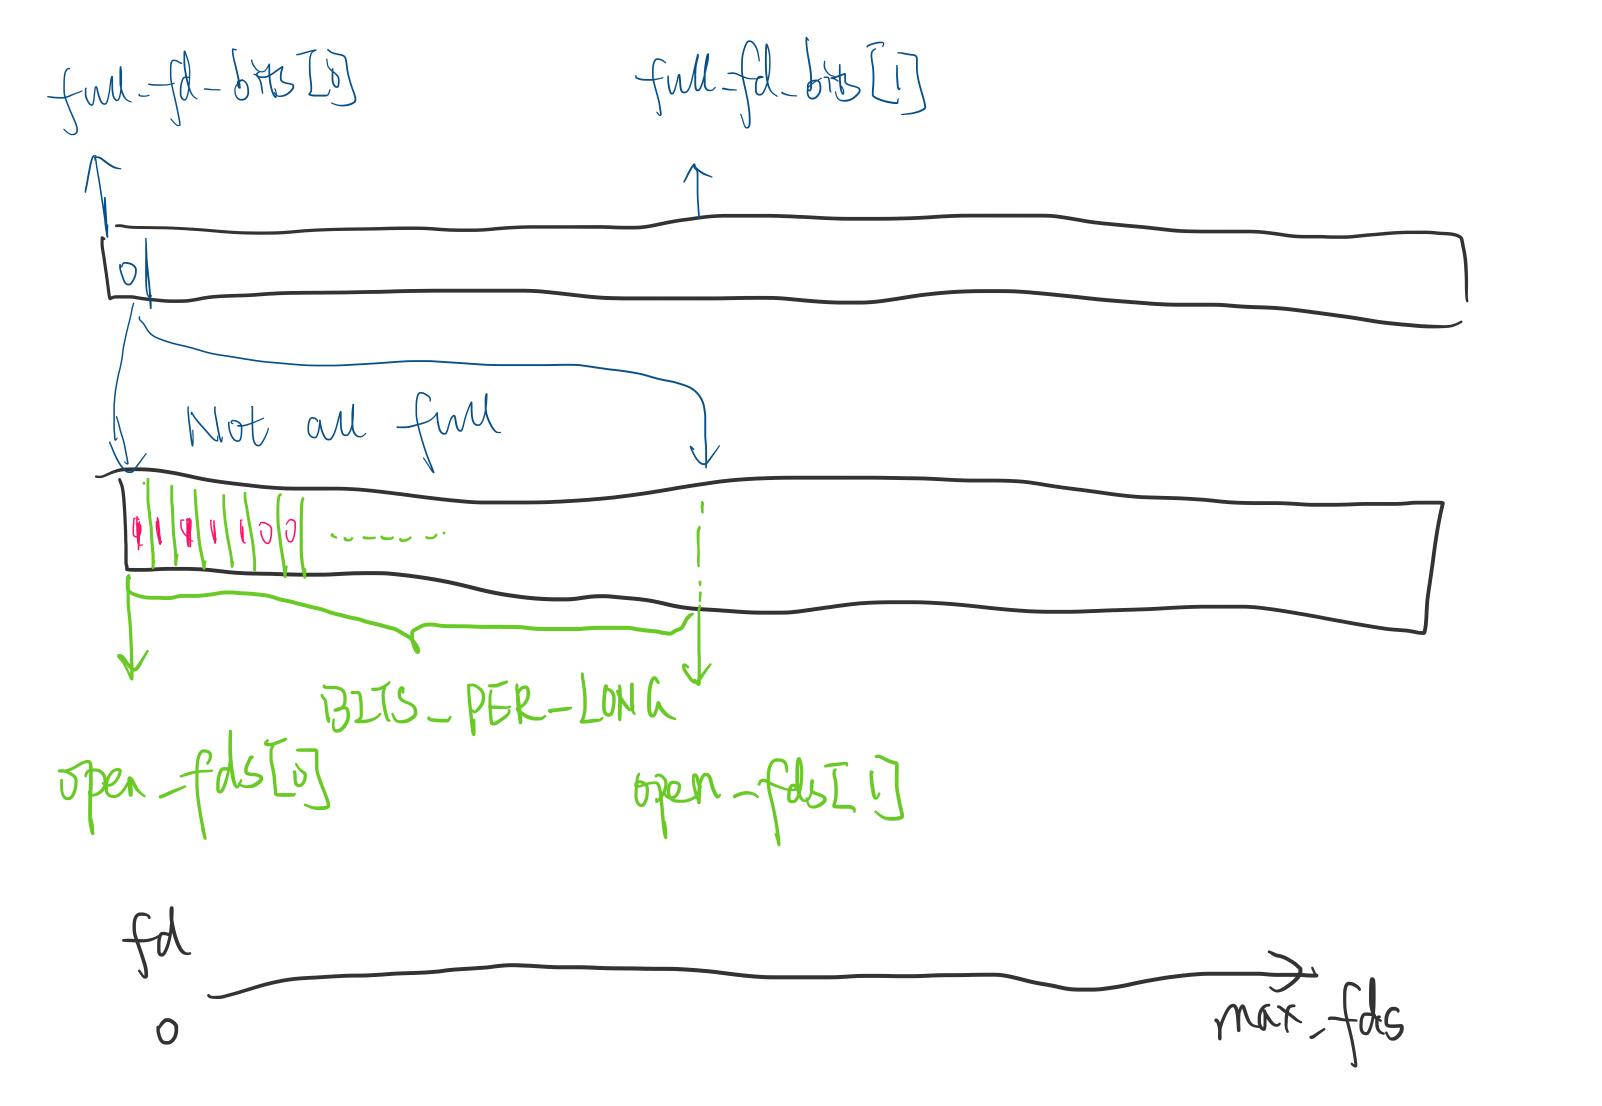 full_fd_bits[0] full_fd_bits[1]
0
Not all full
1 1 1 1 1 0 0 -------
BITS_PER_LONG
open_fds[0] open_fds[1]
fd
0 max_fds